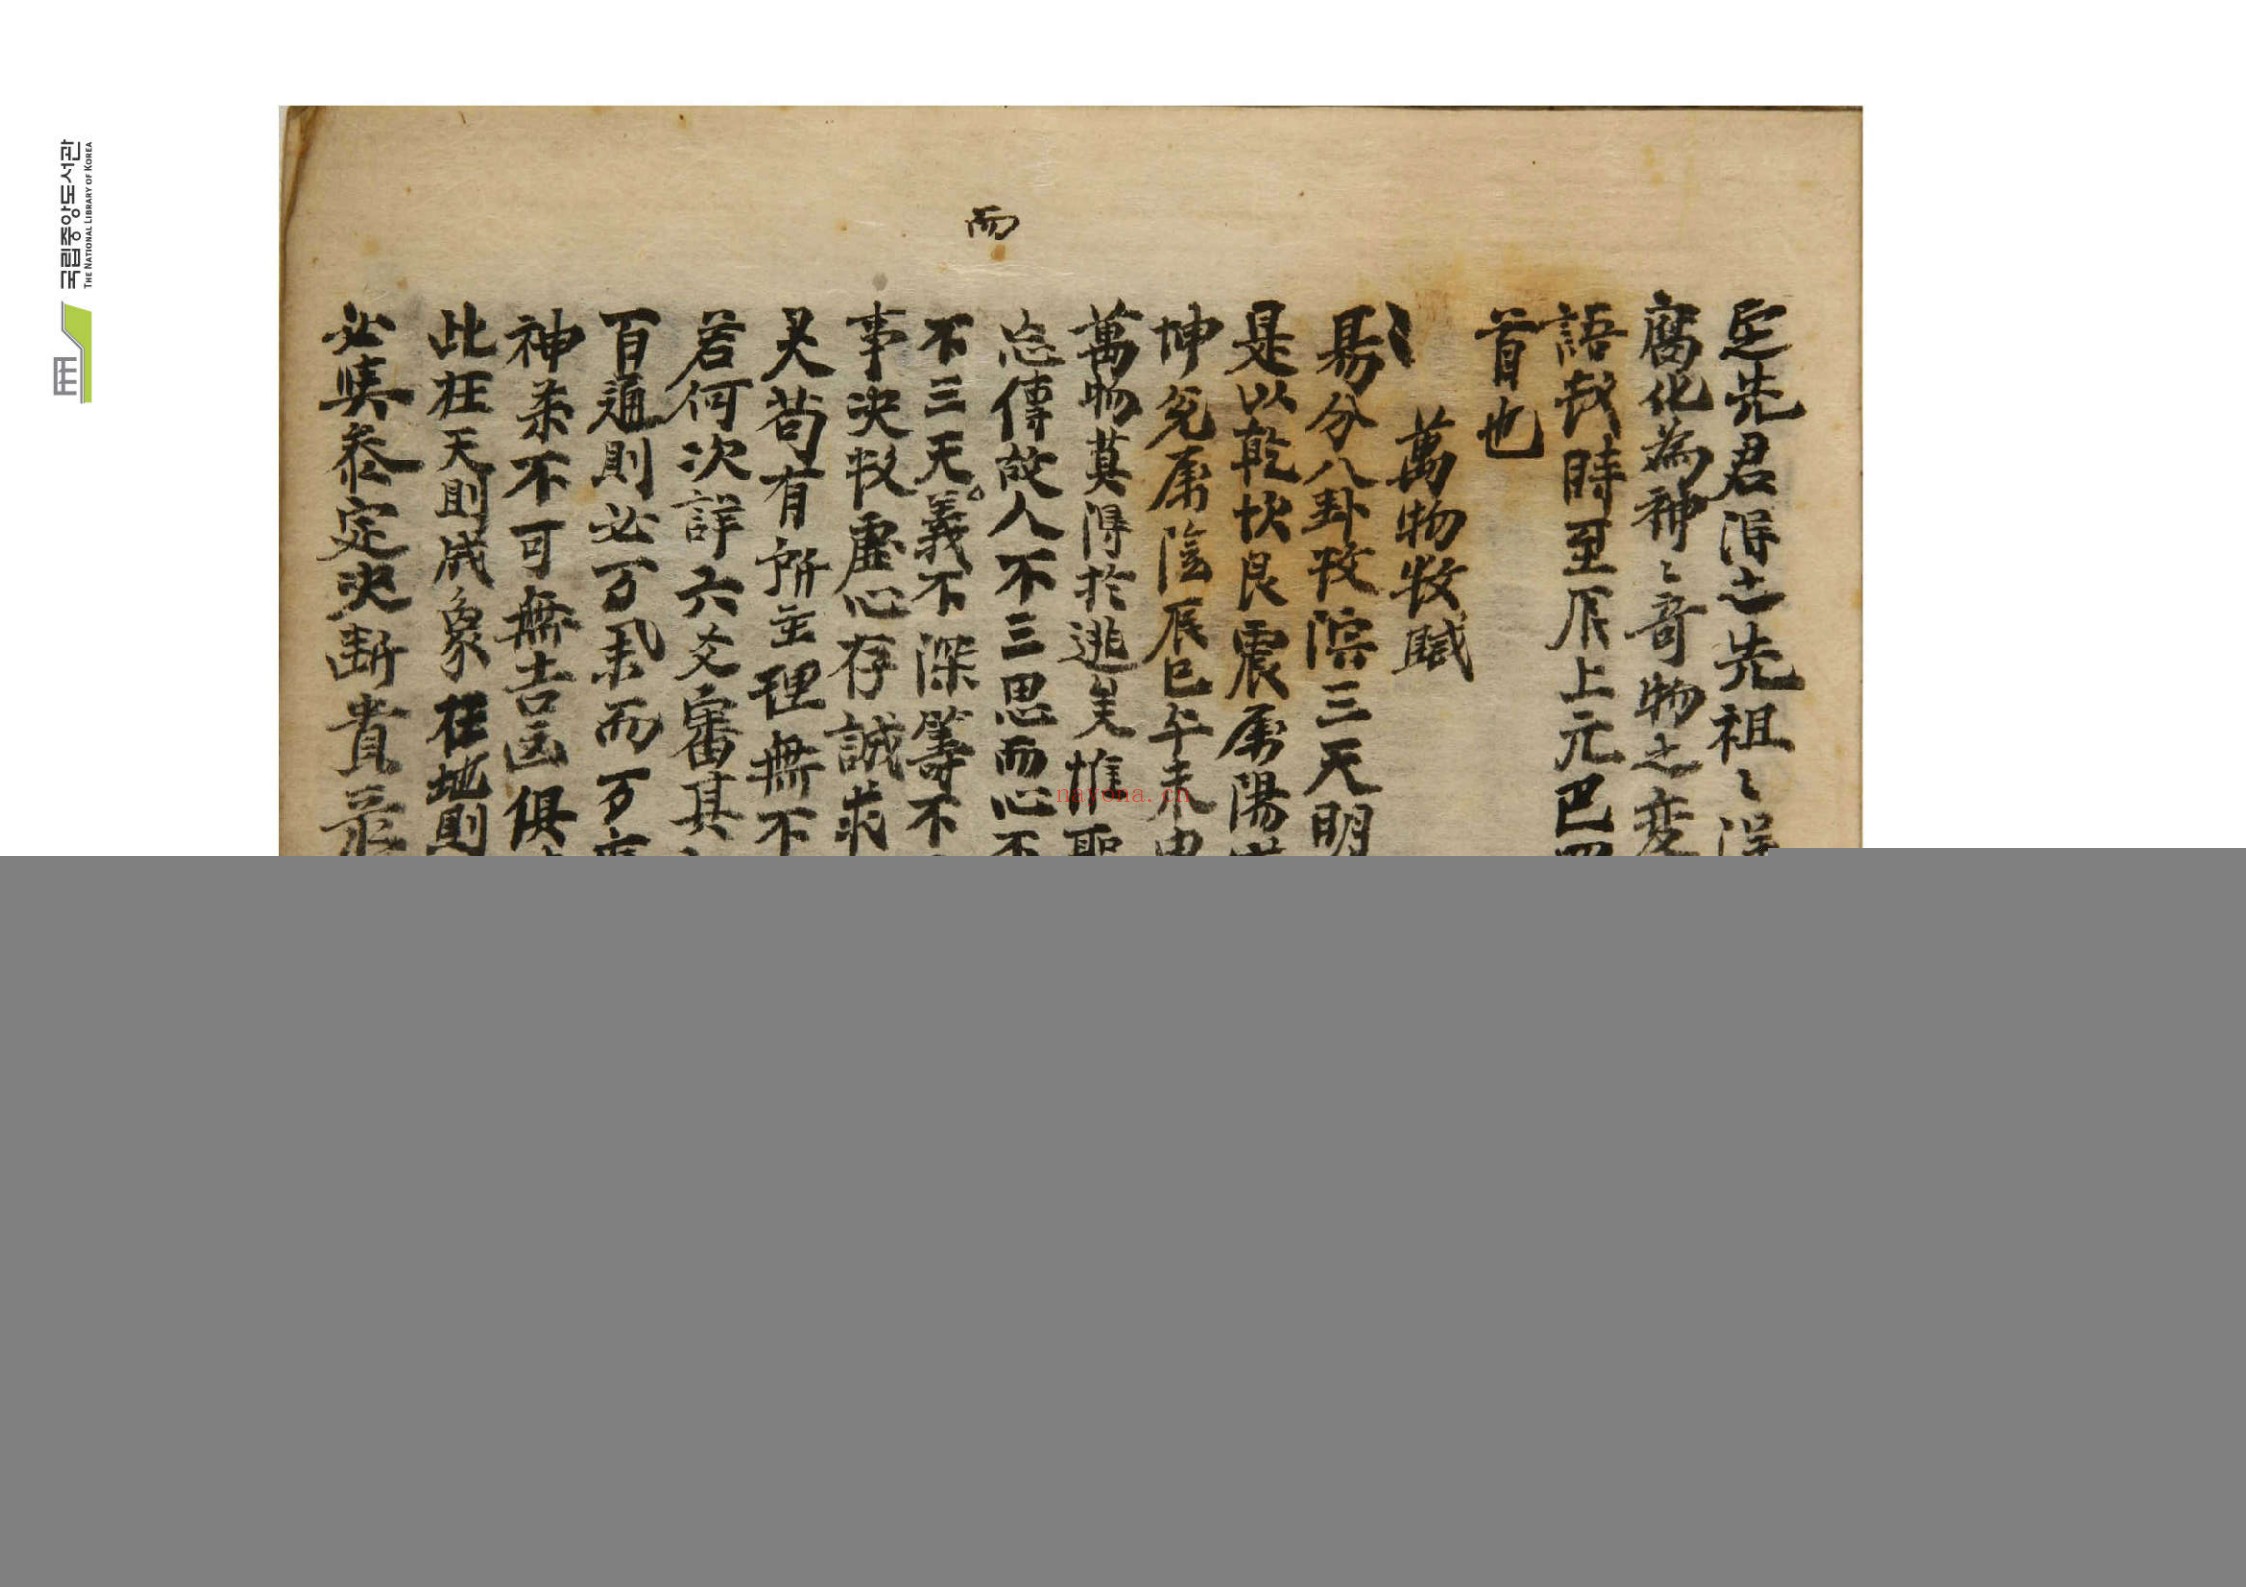 국립중앙도서관
THE NATIONAL LIBRARY OF KOREA
而
定先君得之先祖〻
腐化為神〻奇物之变
語哉時至厎上元巴
首也
萬物牧賦
易分八卦牧流三天明
是以乾坎艮震属陽
坤兌属陰辰巳午未申
萬物莫得於逃矣惟聖
忘傳故人不三思而心不
不三天義不深筹不
事决牧虛心存誠求
灵苟有所主理無不
若何次詳六爻審其
百通則必万 而万
神柔不可無吉凶俱
此在天則成象在地則
必 叅定决断貴
nayona.cn